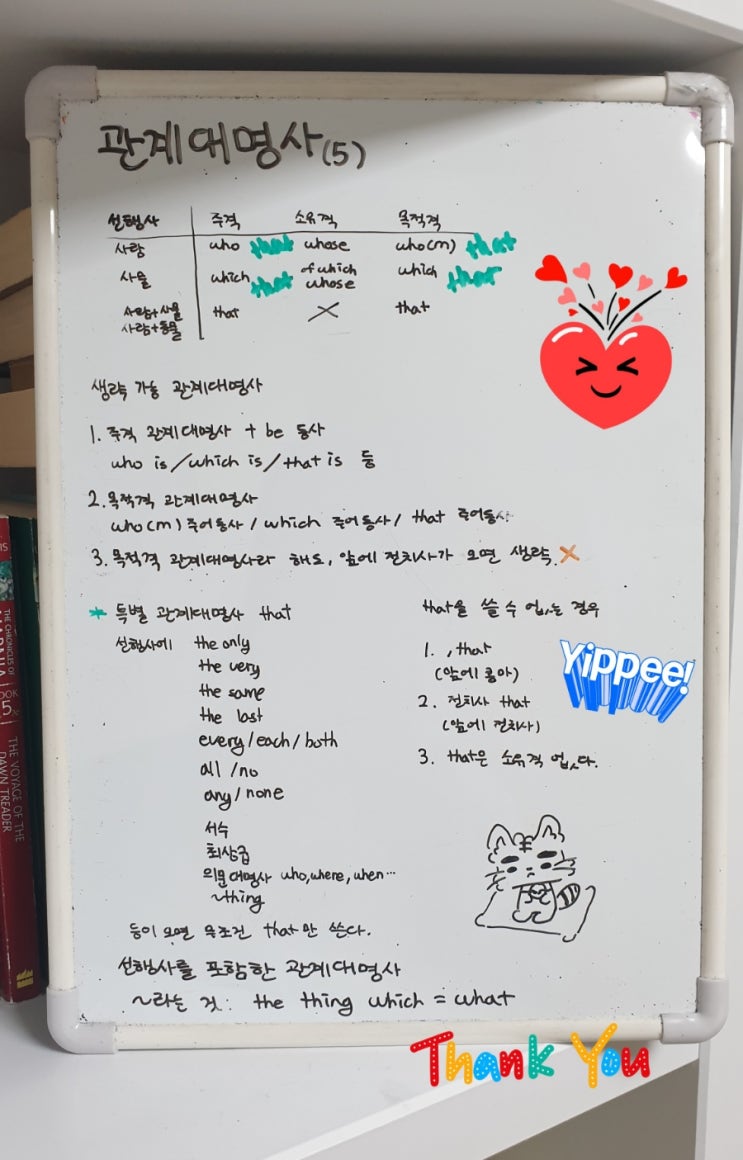 관계대명사(5)
선행사 주격 소유격 목적격
사람 who that whose who(m) that
사물 which that of which whose which that
사람+사물
사람+동물 that X that
생략 가능 관계대명사
1. 주격 관계대명사 + be 동사
who is/which is/that is 등
2. 목적격 관계대명사
who(m) 주어동사 / which 주어동사/ that 주어동사
3. 목적격 관계대명사라 해도, 앞에 전치사가 오면 생략 X
* 특별 관계대명사 that
선행사에 the only
the very
the same
the last
every/each/both
all /no
any/none
서수
최상급
의문대명사 who, where, when…
~thing
등이 오면 무조건 that만 쓴다.
that을 쓸 수 없는 경우
1. , that
(앞에 콤마)
2. 전치사 that
(앞에 전치사)
3. that은 소유격 없다.
선행사를 포함한 관계대명사
~라는 것: the thing which = what
Yippee!
Thank You
THE CHRONICLES OF
THE VOYAGE OF THE
DAWN TREADER